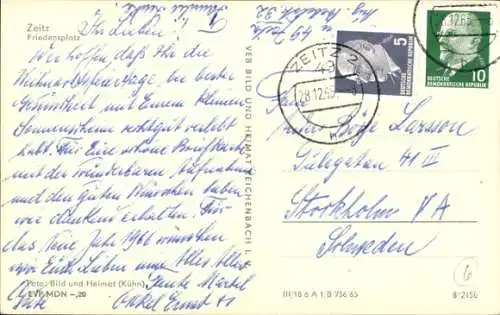 Zeitz
Friedensplatz
Ihr Lieben!
Wir hoffen, daß Ihr die
Weihnachtsfeiertage, bei bester
Gesundheit mit Eurem kleinen
Sonnenschein recht gut verlebt
habt. Für Eure schöne Briefkarte
mit der wunderbaren Aufnahme
und den guten Wünschen haben
wir dankend erhalten. Für
das Neue Jahr 1966 wünschen
wir Euch Lieben nur Alles Alles
Gute Tante Martel
Onkel Ernst
Foto: Bild und Heimat (Kühn)
EVP MDN -,20
VEB BILD UND HEIMAT REICHENBACH I. V.
49 Zeitz
ZEITZ 2
49
28.12.65
5
DEUTSCHE
DEMOKRATISCHE REPUBLIK
12.65
DEUTSCHE
DEMOKRATISCHE REPUBLIK 10
Larsson
41 III
Stockholm VA
Schweden
III/18 6 A 1 B 756 65
8 1245b
6